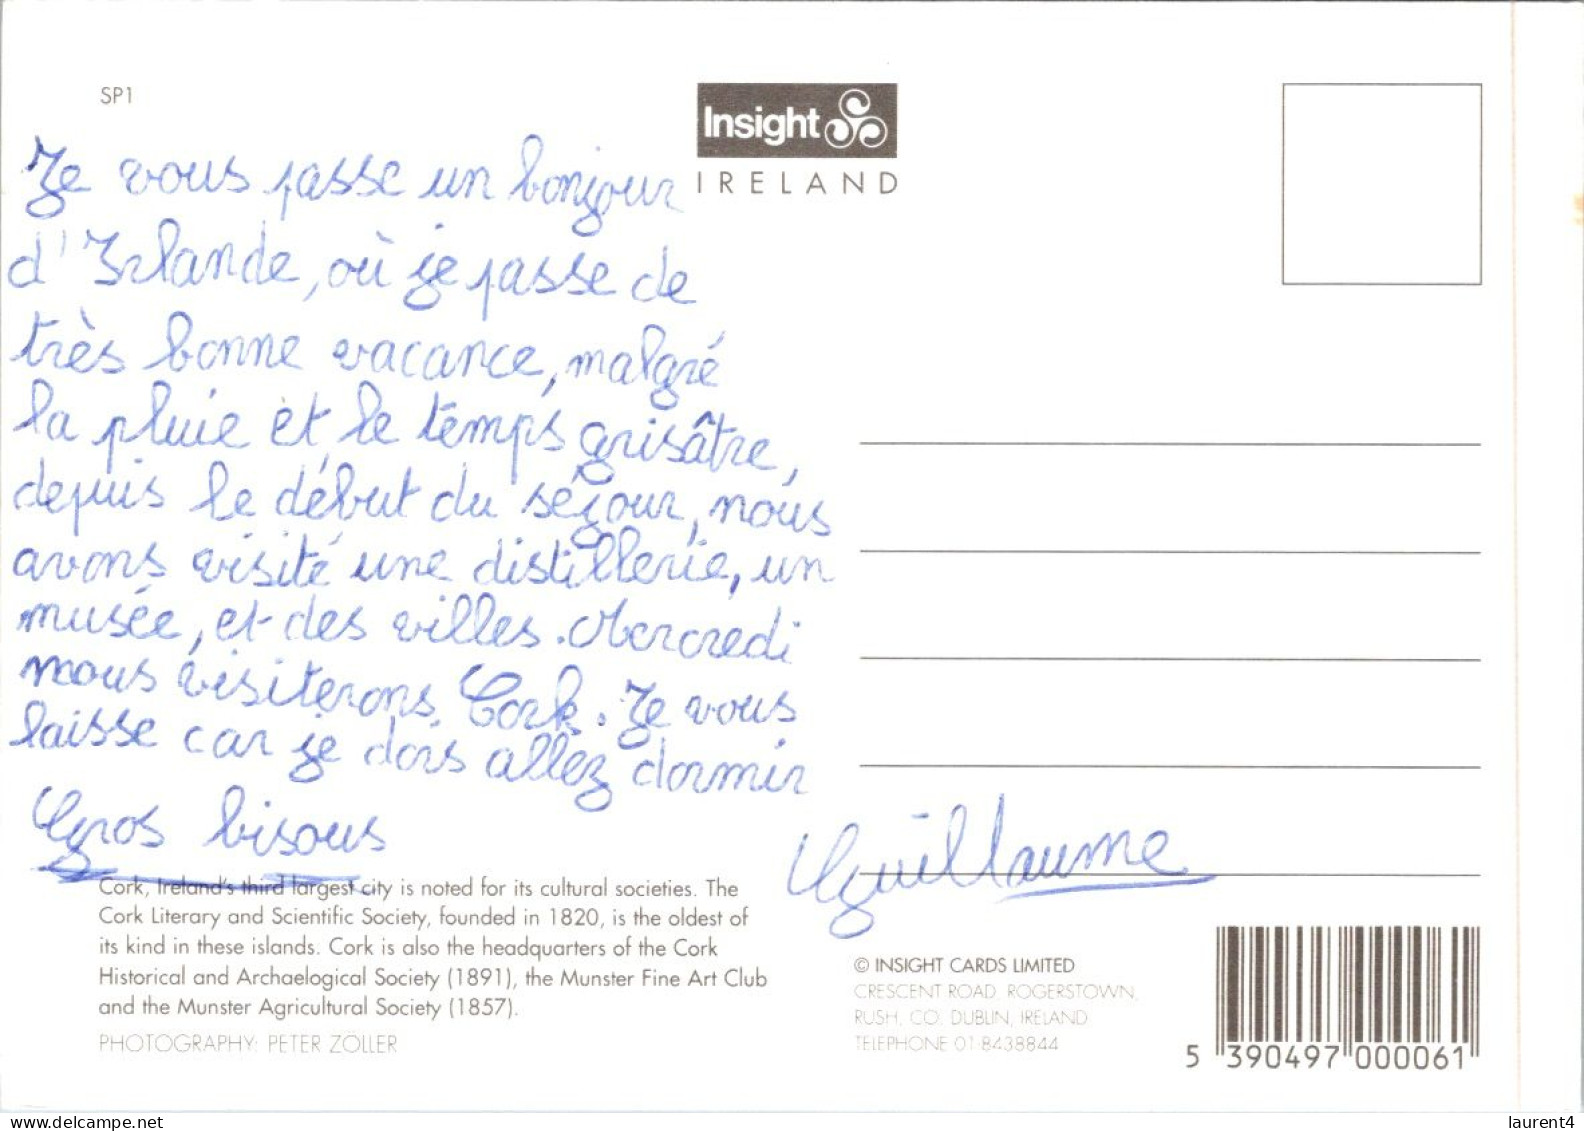 SP1
Insight
IRELAND
Je vous passe un bonjour
d'Irlande, où je passe de
très bonne vacance, malgré
la pluie et le temps grisâtre,
depuis le début du séjour, nous
avons visité une distillerie, un
musée, et des villes. Mercredi
nous visiterons Cork. Je vous
laisse car je dois allez dormir
Gros bisous
Guillaume
Cork, Ireland's third largest city is noted for its cultural societies. The
Cork Literary and Scientific Society, founded in 1820, is the oldest of
its kind in these islands. Cork is also the headquarters of the Cork
Historical and Archaelogical Society (1891), the Munster Fine Art Club
and the Munster Agricultural Society (1857).
PHOTOGRAPHY: PETER ZÖLLER
© INSIGHT CARDS LIMITED
CRESCENT ROAD, ROGERSTOWN,
RUSH, CO. DUBLIN, IRELAND
TELEPHONE 01-8438844
5 390497 000061
delcampe.net
laurent4